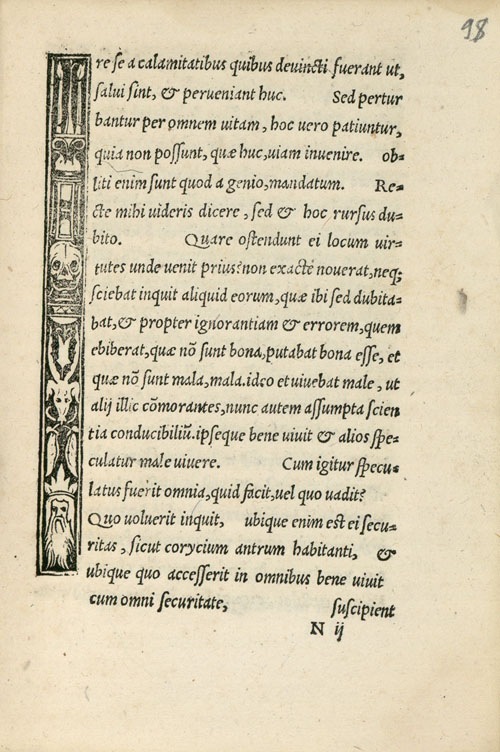 98
re se a calamitatibus quibus deuincti fuerant ut,
salui sint, & perueniant huc. Sed pertur
bantur per omnem uitam, hoc uero patiuntur,
quia non possunt, quæ huc, uiam inuenire. ob=
liti enim sunt quod a genio, mandatum. Re=
cte mihi uideris dicere, sed & hoc rursus du=
bito. Quare ostendunt ei locum uir=
tutes unde uenit prius? non exacte nouerat, neq;
sciebat inquit aliquid eorum, quæ ibi sed dubita=
bat, & propter ignorantiam & errorem, quem
ebiberat, quæ nõ sunt bona, putabat bona esse, et
quæ nõ sunt mala, mala. ideo et uiuebat male, ut
alij illic cõmorantes, nunc autem assumpta scien
tia conducibiliũ. ipseque bene uiuit & alios spe=
culatur male uiuere. Cum igitur specu=
latus fuerit omnia, quid facit, uel quo uadit?
Quo uoluerit inquit, ubique enim est ei secu=
ritas, sicut corycium antrum habitanti, &
ubique quo accesserit in omnibus bene uiuit
cum omni securitate, suscipient
N ij